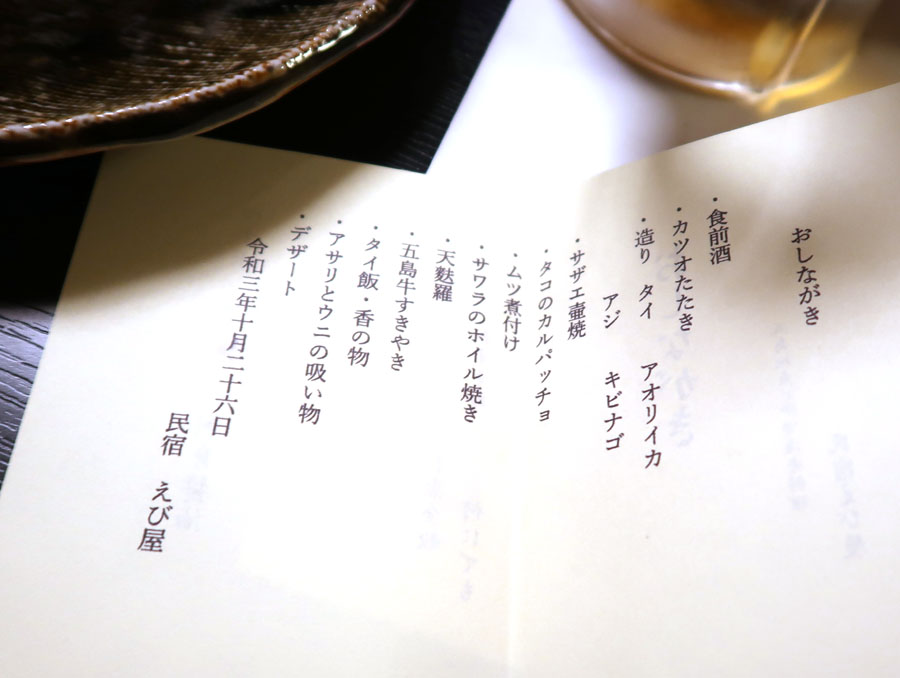 おしながき
・食前酒
・カツオたたき
・造り　タイ　アオリイカ
アジ　キビナゴ
・サザエ壷焼
・タコのカルパッチョ
・ムツ煮付け
・サワラのホイル焼き
・天麩羅
・五島牛すきやき
・タイ飯・香の物
・アサリとウニの吸い物
・デザート
令和三年十月二十六日
民宿　えび屋